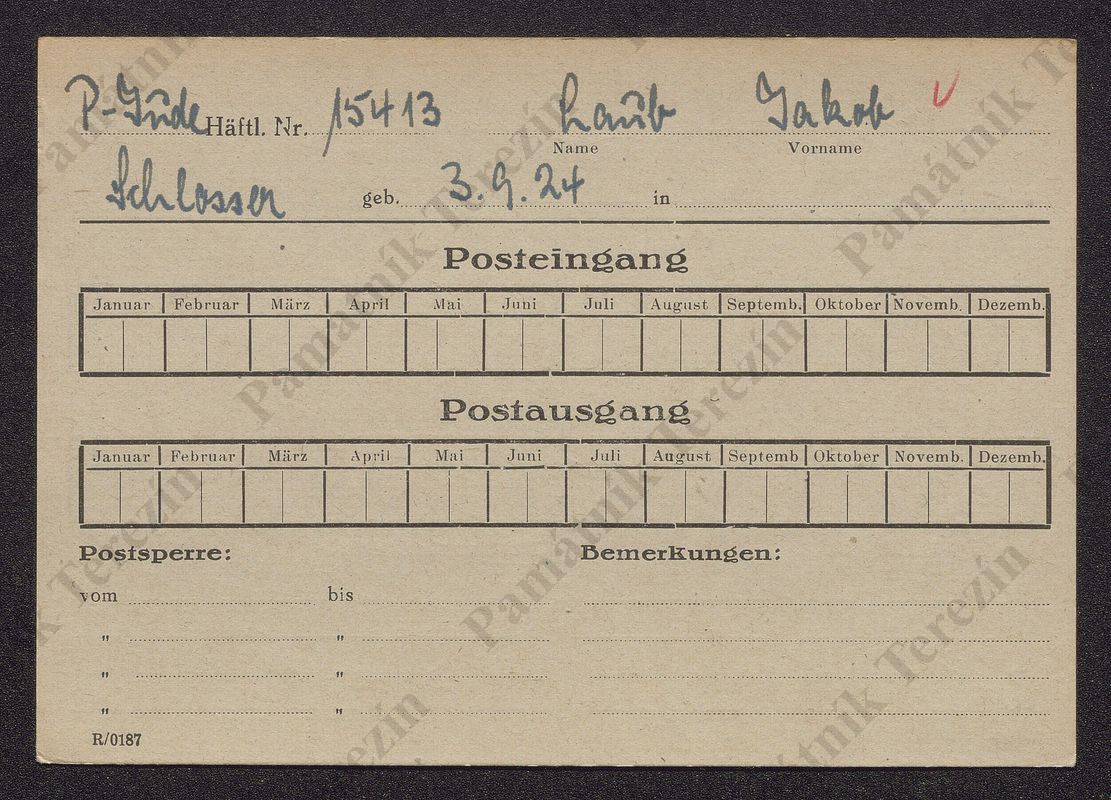 P-Jude Häftl. Nr. 15413 Laub Jakob V
Name Vorname
Schlosser geb. 3.9.24 in
Posteingang
Januar Februar März April Mai Juni Juli August Septemb. Oktober Novemb. Dezemb.
Postausgang
Januar Februar März April Mai Juni Juli August Septemb Oktober Novemb. Dezemb.
Postsperre: Bemerkungen:
vom bis
" "
" "
" "
R/0187
Památník Terezín